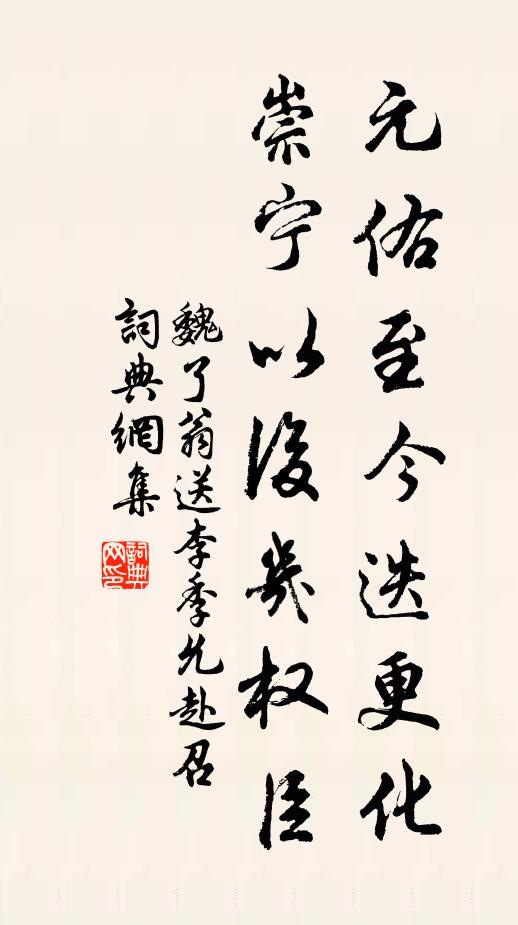 元佑至今迭更化
崇宁以後几权臣
魏了翁送李季允赴召
詞典網集
詞典网印